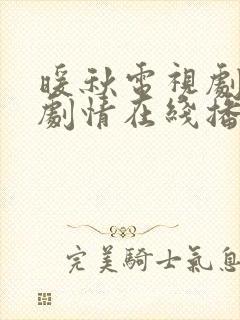 暖秋電視劇
劇情在綫播
完美騎士氣息